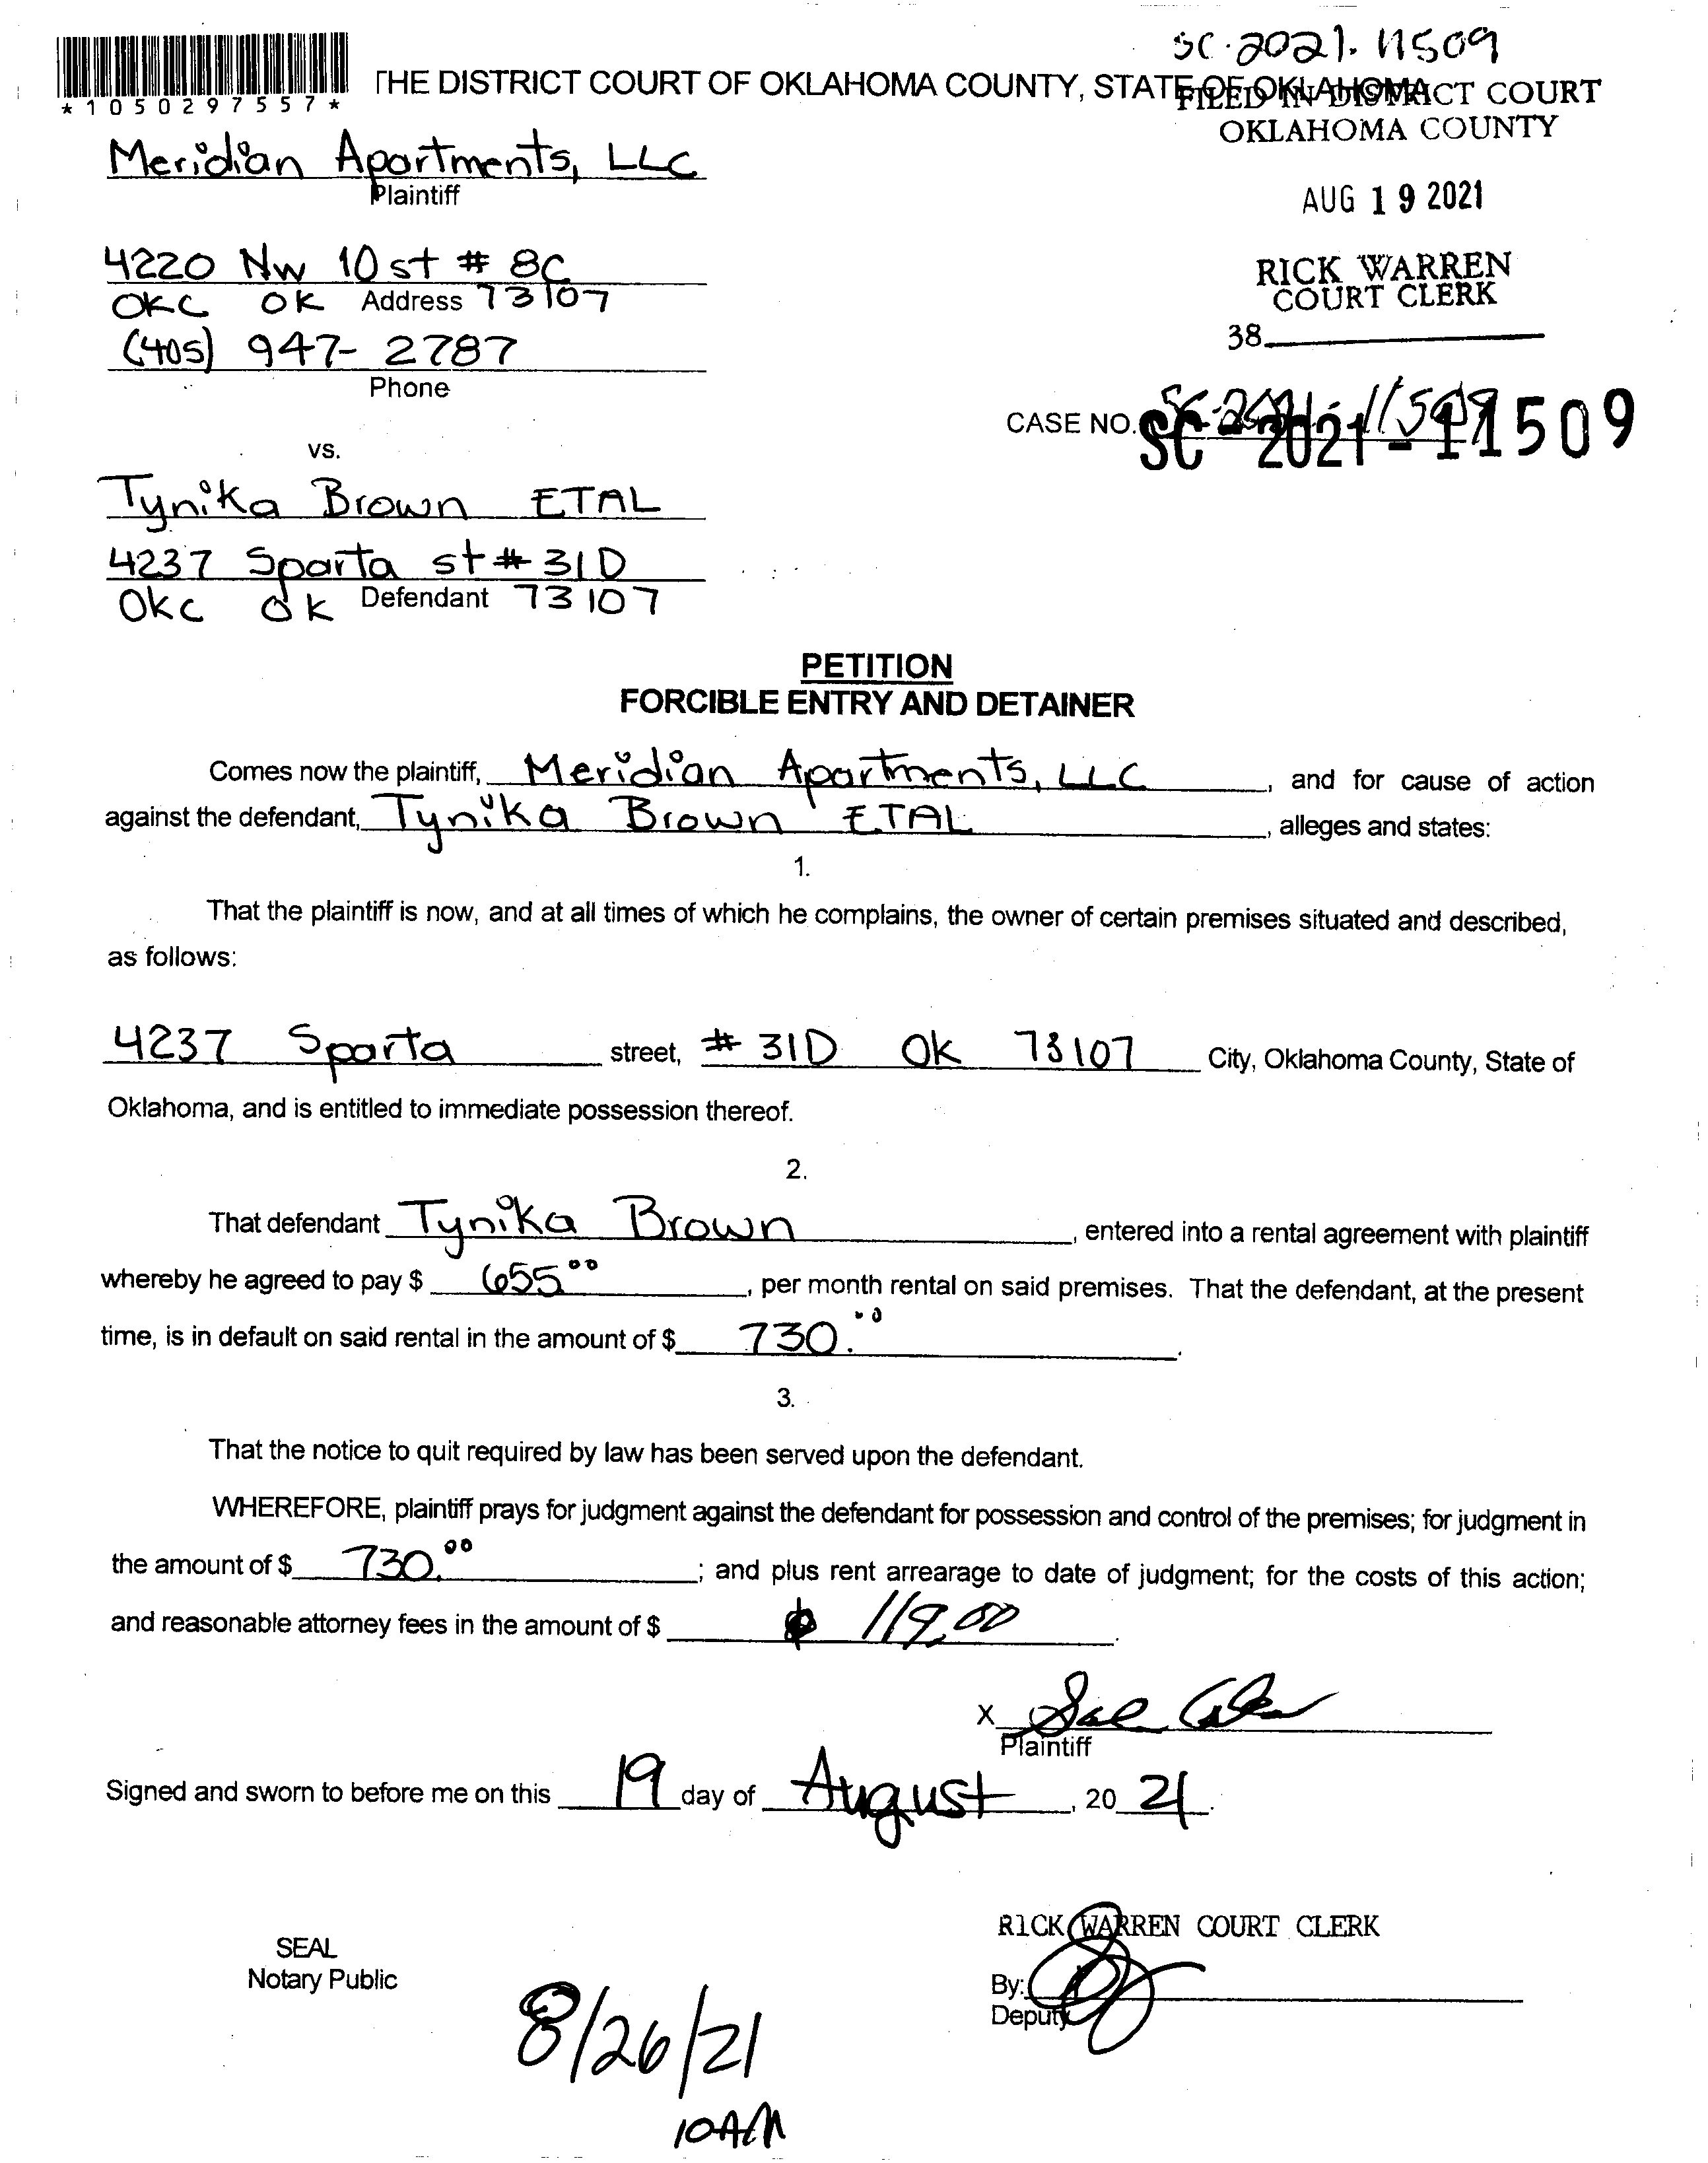 SC-2021-11509
*1050297557*
THE DISTRICT COURT OF OKLAHOMA COUNTY, STATE OF OKLAHOMA
FILED IN DISTRICT COURT
OKLAHOMA COUNTY
Meridian Apartments, LLC
Plaintiff
AUG 19 2021
4220 NW 10 st # 8C
OKC OK Address 73107
RICK WARREN
COURT CLERK
(405) 947-2787
Phone
38
CASE NO. SC-2021-11509
SC-2021-11509
vs.
Tynika Brown ETAL
4237 Sparta st # 31D
OKC OK Defendant 73107
PETITION
FORCIBLE ENTRY AND DETAINER
Comes now the plaintiff, Meridian Apartments, LLC, and for cause of action
against the defendant, Tynika Brown ETAL, alleges and states:
1.
That the plaintiff is now, and at all times of which he complains, the owner of certain premises situated and described,
as follows:
4237 Sparta street, # 31D OK 73107 City, Oklahoma County, State of
Oklahoma, and is entitled to immediate possession thereof.
2.
That defendant Tynika Brown, entered into a rental agreement with plaintiff
whereby he agreed to pay $ 655.00, per month rental on said premises. That the defendant, at the present
time, is in default on said rental in the amount of $ 730.00.
3.
That the notice to quit required by law has been served upon the defendant.
WHEREFORE, plaintiff prays for judgment against the defendant for possession and control of the premises; for judgment in
the amount of $ 730.00; and plus rent arrearage to date of judgment; for the costs of this action;
and reasonable attorney fees in the amount of $ 119.00.
X
Plaintiff
Signed and sworn to before me on this 19 day of August, 20 21.
RICK WARREN COURT CLERK
SEAL
Notary Public
By:
Deputy
8/26/21
10AM